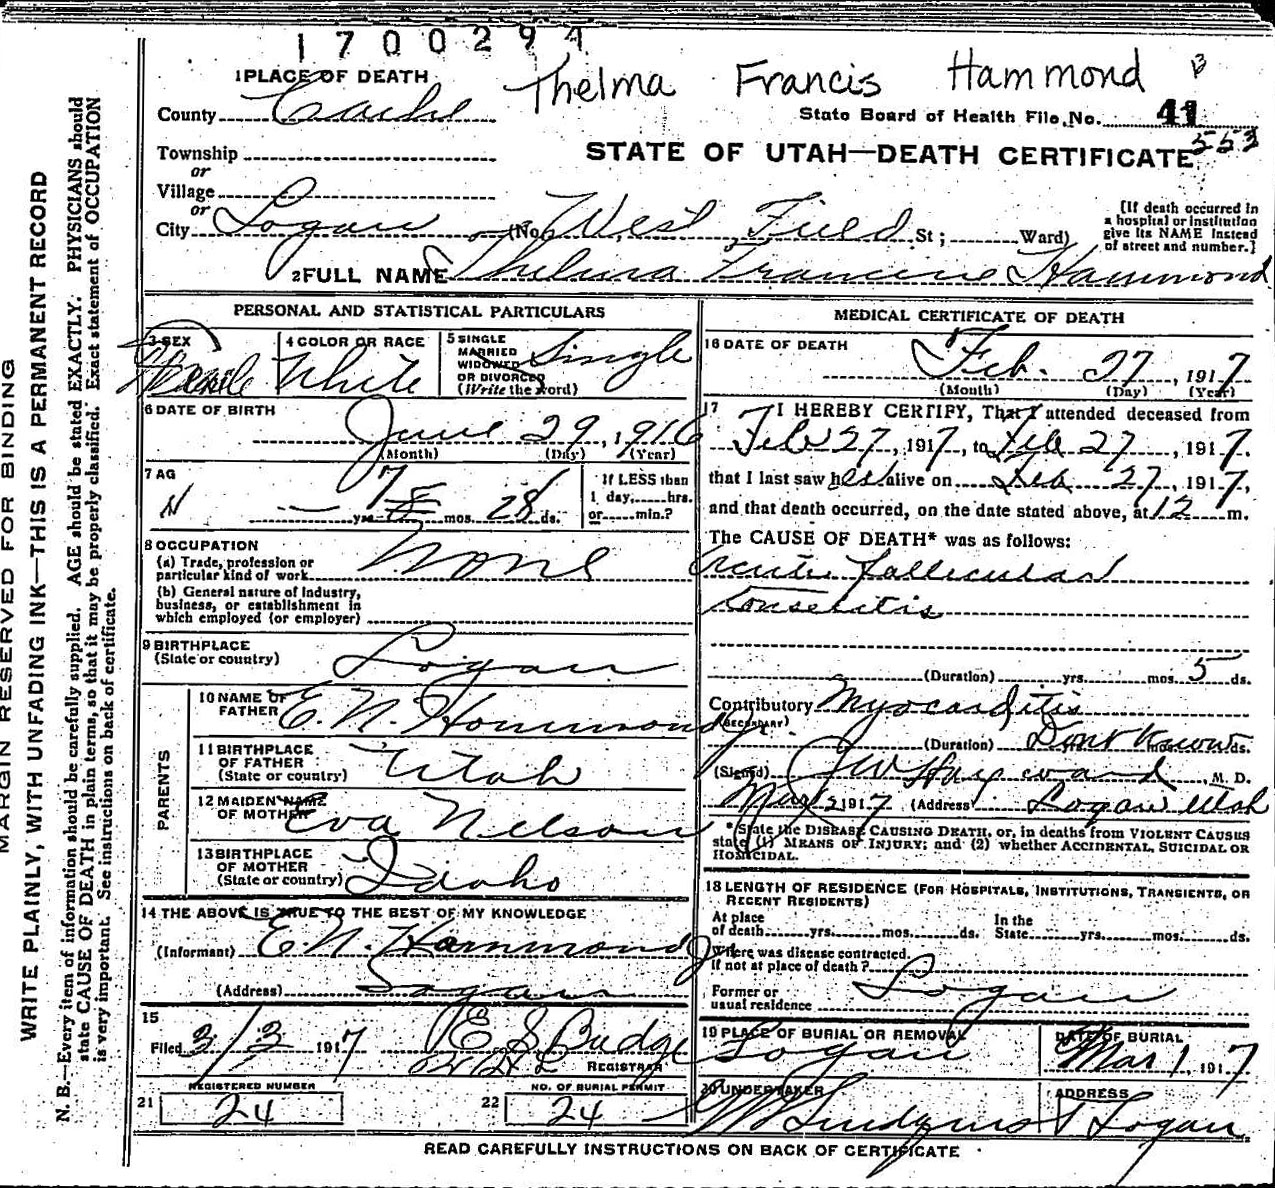 1700294
Thelma Francis Hammond B
1 PLACE OF DEATH
County Cache
State Board of Health File No. 41
553
STATE OF UTAH—DEATH CERTIFICATE
Township
or
Village
or
City Logan (No. West Field St; Ward)
[If death occurred in
a hospital or institution
give its NAME instead
of street and number.]
2 FULL NAME Thelma Francine Hammond
PERSONAL AND STATISTICAL PARTICULARS
3 SEX
4 COLOR OR RACE
White
5 SINGLE
MARRIED
WIDOWED
OR DIVORCED
(Write the word)
Single
6 DATE OF BIRTH
June 29, 1916
(Month) (Day) (Year)
7 AG
7 yrs. mos. 28 ds.
If LESS than
1 day, hrs.
or min.?
8 OCCUPATION
(a) Trade, profession or
particular kind of work
None
(b) General nature of industry,
business, or establishment in
which employed (or employer)
9 BIRTHPLACE
(State or country)
Logan
PARENTS
10 NAME OF
FATHER
E. N. Hammond Jr.
11 BIRTHPLACE
OF FATHER
(State or country)
Utah
12 MAIDEN NAME
OF MOTHER
Eva Nelson
13 BIRTHPLACE
OF MOTHER
(State or country)
Idaho
14 THE ABOVE IS TRUE TO THE BEST OF MY KNOWLEDGE
(Informant) E. N. Hammond Jr
(Address) Logan
15
Filed 3/3 1917 E S Budge
REGISTRAR
REGISTERED NUMBER
21 24
NO. OF BURIAL PERMIT
22 24
MEDICAL CERTIFICATE OF DEATH
16 DATE OF DEATH
Feb. 27, 1917
(Month) (Day) (Year)
17 I HEREBY CERTIFY, That I attended deceased from
Feb 27, 1917, to Feb 27, 1917.
that I last saw her alive on Feb 27, 1917,
and that death occurred, on the date stated above, at 12 m.
The CAUSE OF DEATH* was as follows:
Acute follicular
tonselitis
(Duration) yrs. mos. 5 ds.
Contributory Myocarditis
(SECONDARY)
(Duration) Dont Know mos. ds.
(Signed) J W Hayward, M. D.
Mar 2 1917 (Address) Logan Utah
*State the DISEASE CAUSING DEATH, or, in deaths from VIOLENT CAUSES
state (1) MEANS OF INJURY; and (2) whether ACCIDENTAL, SUICIDAL OR
HOMICIDAL.
18 LENGTH OF RESIDENCE (FOR HOSPITALS, INSTITUTIONS, TRANSIENTS, OR
RECENT RESIDENTS)
At place
of death yrs. mos. ds.
In the
State yrs. mos. ds.
Where was disease contracted.
If not at place of death?
Former or
usual residence
Logan
19 PLACE OF BURIAL OR REMOVAL
Logan
DATE OF BURIAL
Mar 1, 1917
20 UNDERTAKER
ADDRESS
Logan
READ CAREFULLY INSTRUCTIONS ON BACK OF CERTIFICATE
MARGIN RESERVED FOR BINDING
WRITE PLAINLY, WITH UNFADING INK—THIS IS A PERMANENT RECORD
N. B.—Every item of information should be carefully supplied. AGE should be stated EXACTLY. PHYSICIANS should
state CAUSE OF DEATH in plain terms, so that it may be properly classified. Exact statement of OCCUPATION
is very important. See instructions on back of certificate.